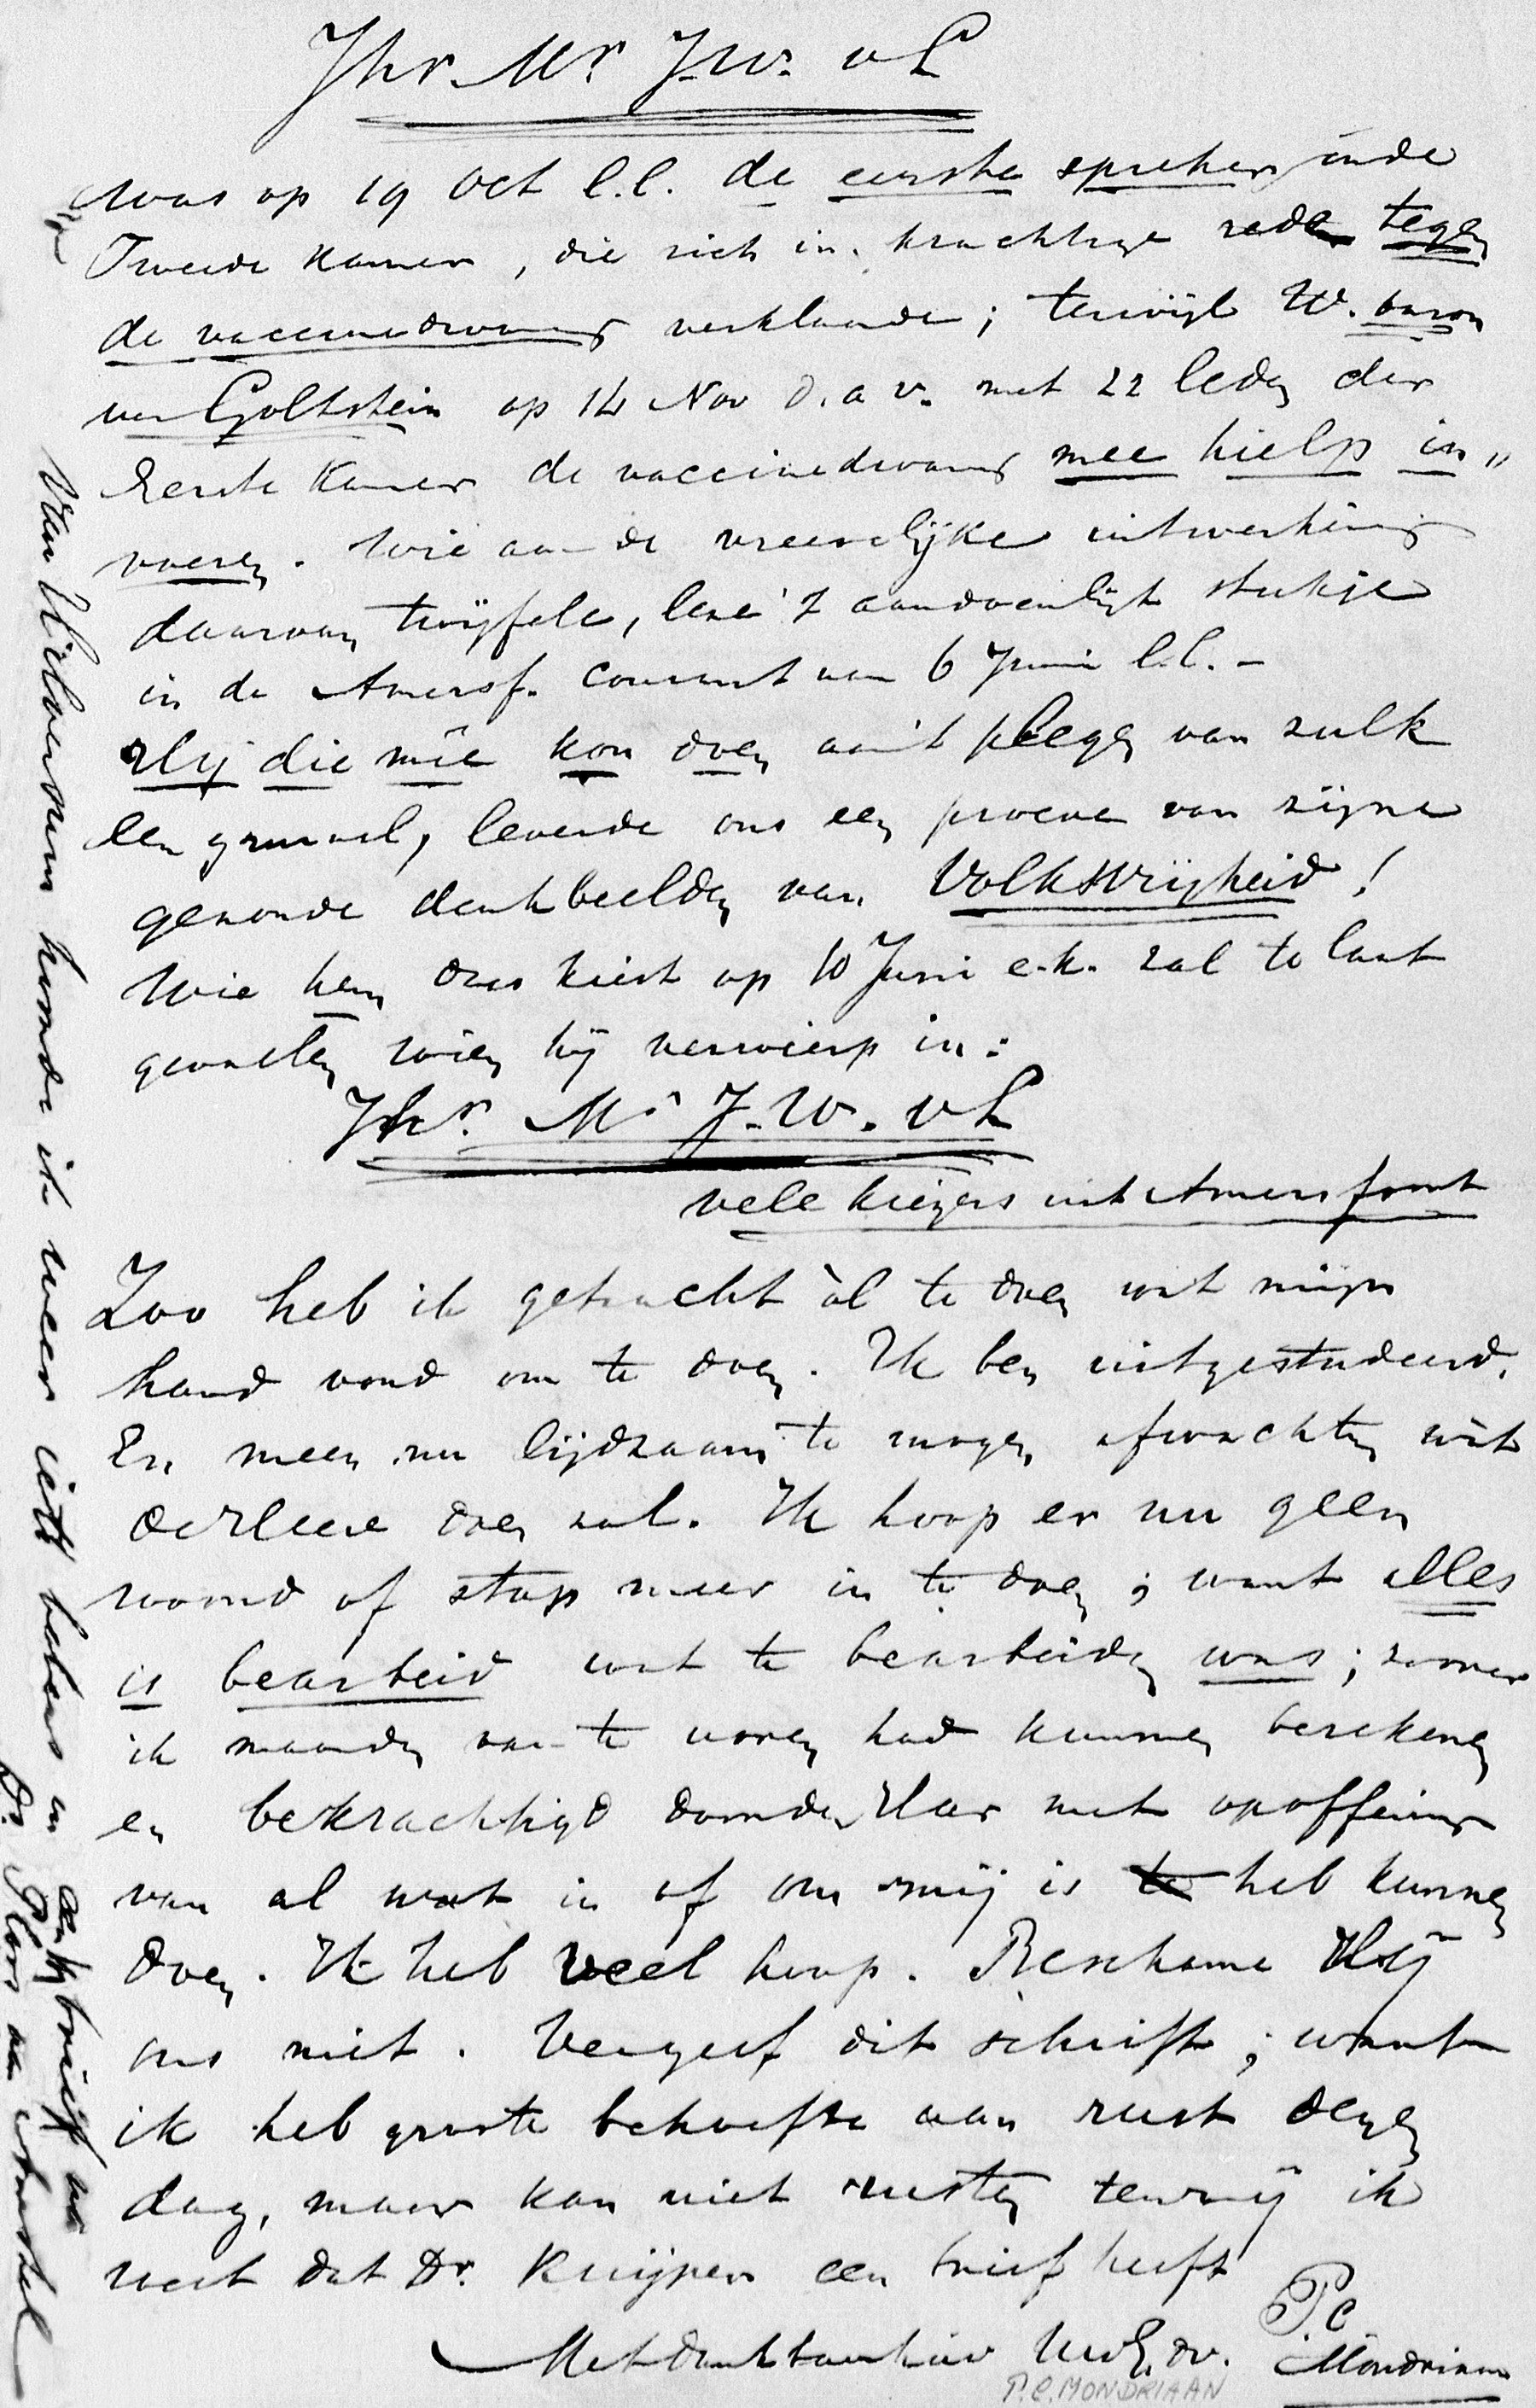 Jhr. Mr J.W. v L
was op 19 Oct l.l. de eerste spreker in de
Tweede Kamer, die zich in krachtige rede tegen
de vaccinedwang verklaarde; terwijl W. baron
van Goltstein op 14 Nov d.a.v. met 22 leden der
Eerste Kamer de vaccinedwang mee hielp in„
voeren. Wie aan de vreeselijke uitwerking
daarvan twijfele, leze 't aandoenlijk stukje
in de Amersf. Courant van 6 Juni l.l. –
Hij die mêe kon doen aan 't plegen van zulk
een gruwel, leverde ons een proeve van zijne
gezonde denkbeelden van Volksvrijheid!
Wie hem dus kiest op 10 Juni e.k. zal te laat
gevoelen wien hij verwierp in:
Jhr. Mr J.W. v L
vele kiezers uit Amersfoort
Zoo heb ik getracht àl te doen wat mijn
hand vond om te doen. Ik ben uitgestudeerd.
En meen nu lijdzaam te mogen afwachten wat
de Heere doen zal. Ik hoop er nu geen
woord of stap meer in te doen; want alles
is bearbeid wat te bearbeiden was; zoover
ik maanden van te voren had kunnen berekenen
en bekrachtigd door den Heer met opoffering
van al wat in of om mij is te heb kunnen
doen. Ik heb veel hoop. Beschame Hij
ons niet. Vergeef dit schrift; want
ik heb groote behoefte aan rust dezen
dag, maar kan niet rusten terwijl ik
weet dat Dr. Kuijper een brief heeft
Met dankbaarheid UwEd. dv. P C
Mondriaan
P.C. MONDRIAAN
Van Hilversum hoorde ik weer iets
Dr. aan